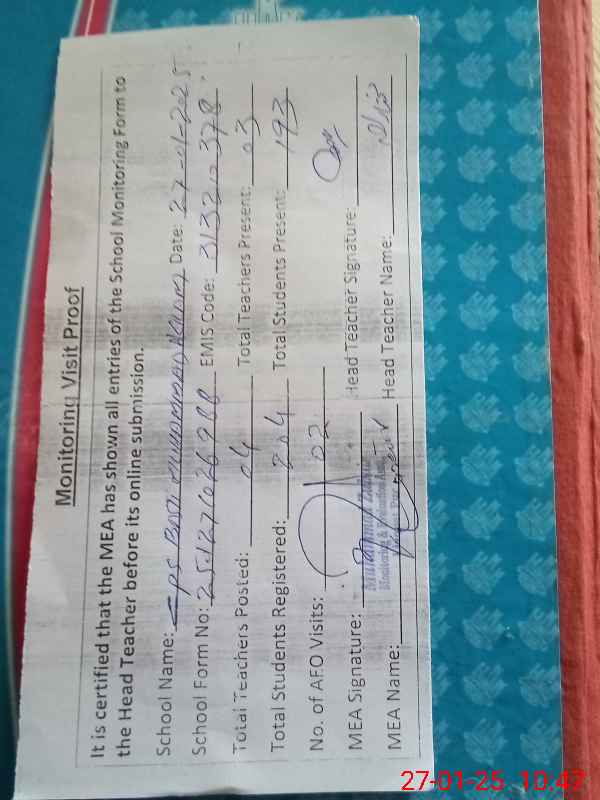 Monitoring Visit Proof
It is certified that the MEA has shown all entries of the School Monitoring Form to
the Head Teacher before its online submission.
School Name: PS Basti Muhammad Date: 27-01-2025
School Form No: EMIS Code: 31320378
Total Teachers Posted: 04 Total Teachers Present: 03
Total Students Registered: 204 Total Students Present: 193
No. of AEO Visits: 02
MEA Signature: Head Teacher Signature:
Monitoring & Evaluation
MEA Name: Head Teacher Name:
27-01-25 10:47